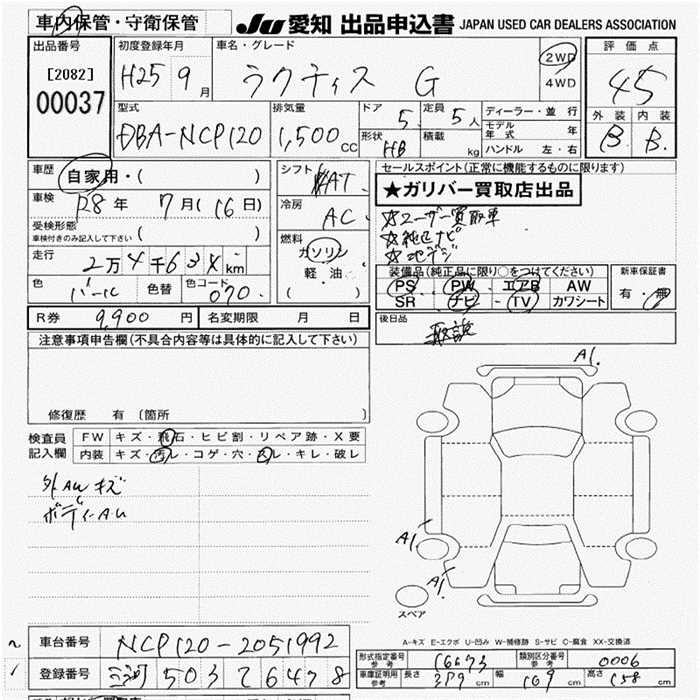 車内保管・守衛保管
JU 愛知 出品申込書 JAPAN USED CAR DEALERS ASSOCIATION
出品番号 初度登録年月 車名・グレード 2WD 評価点
[2082] H25 9月 ラクティス G 4WD 4.5
00037
型式 排気量 ドア 5 定員 5人 ディーラー・並行 外装 内装
DBA-NCP120 1,500CC 形状 HB 積載 kg モデル年式 年 B B
ハンドル 左・右
車歴 自家用・( ) シフト AT セールスポイント(正常に機能するものに限ります)
★ガリバー買取店出品
車検 R8年 7月(16日) 冷房 AC ☆ユーザー買取車
受検形態 車検付きのみ記入して下さい ( ) ☆純正ナビ
燃料 ガソリン ☆地デジ
走行 2万4千63 km 軽・油
装備品(純正品に限り○をつけてください) 新車保証書
色 パール 色替 色コード 070 ( ) PS PW エアB AW 有・無
SR ナビ TV カワシート
R券 9,900円 名変期限 月 日 後日品
取説
注意事項申告欄(不具合内容等は具体的に記入して下さい)
A1
修復歴 有 (箇所
検査員記入欄 FW キズ・飛石・ヒビ割・リペア跡・X要
内装 キズ・汚レ・コゲ・穴・スレ・キレ・破レ
外AUキズ
ボディーAU
A1
A1
スペア
A-キズ E-エクボ U-凹み W-補修跡 S-サビ C-腐食 XX-交換済
車台番号 NCP120-2051992
登録番号 503 て 6478
形式指定番号 参考 16673 類別区分番号 参考 0006
車庫証明用 参考 長さ 399cm 幅 169cm 高さ 158cm